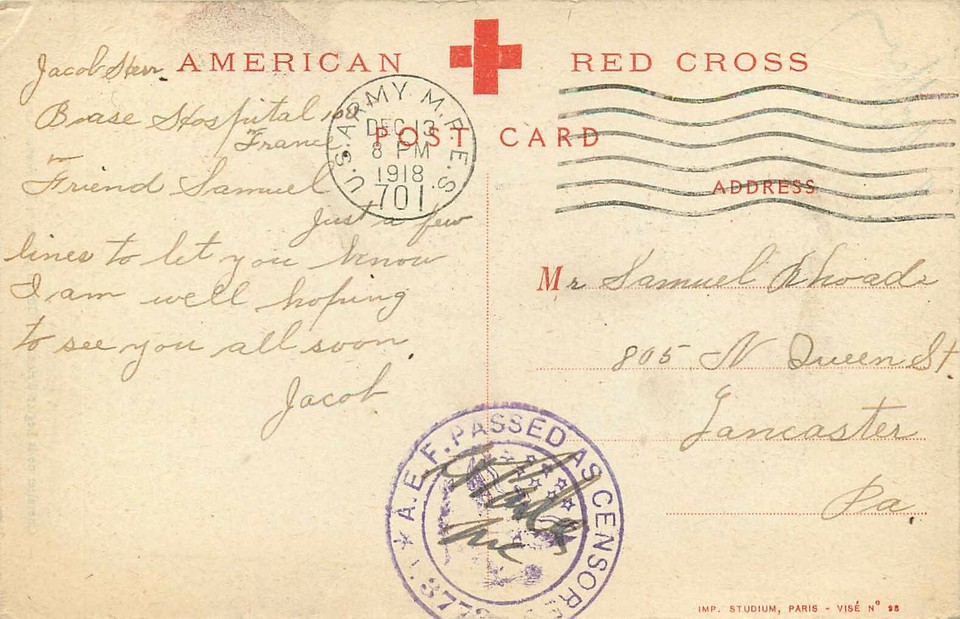 AMERICAN RED CROSS
POST CARD
ADDRESS
U.S. ARMY M.P.E.S.
DEC 13
8 PM
1918
701
Jacob
Base Hospital 108
France
Friend Samuel
Just a few
lines to let you know
I am well hoping
to see you all soon.
Jacob
Mr Samuel Rhoads
805 N Queen St.
Lancaster
Pa.
A.E.F. PASSED AS CENSORED
IMP. STUDIUM, PARIS - VISÉ N°